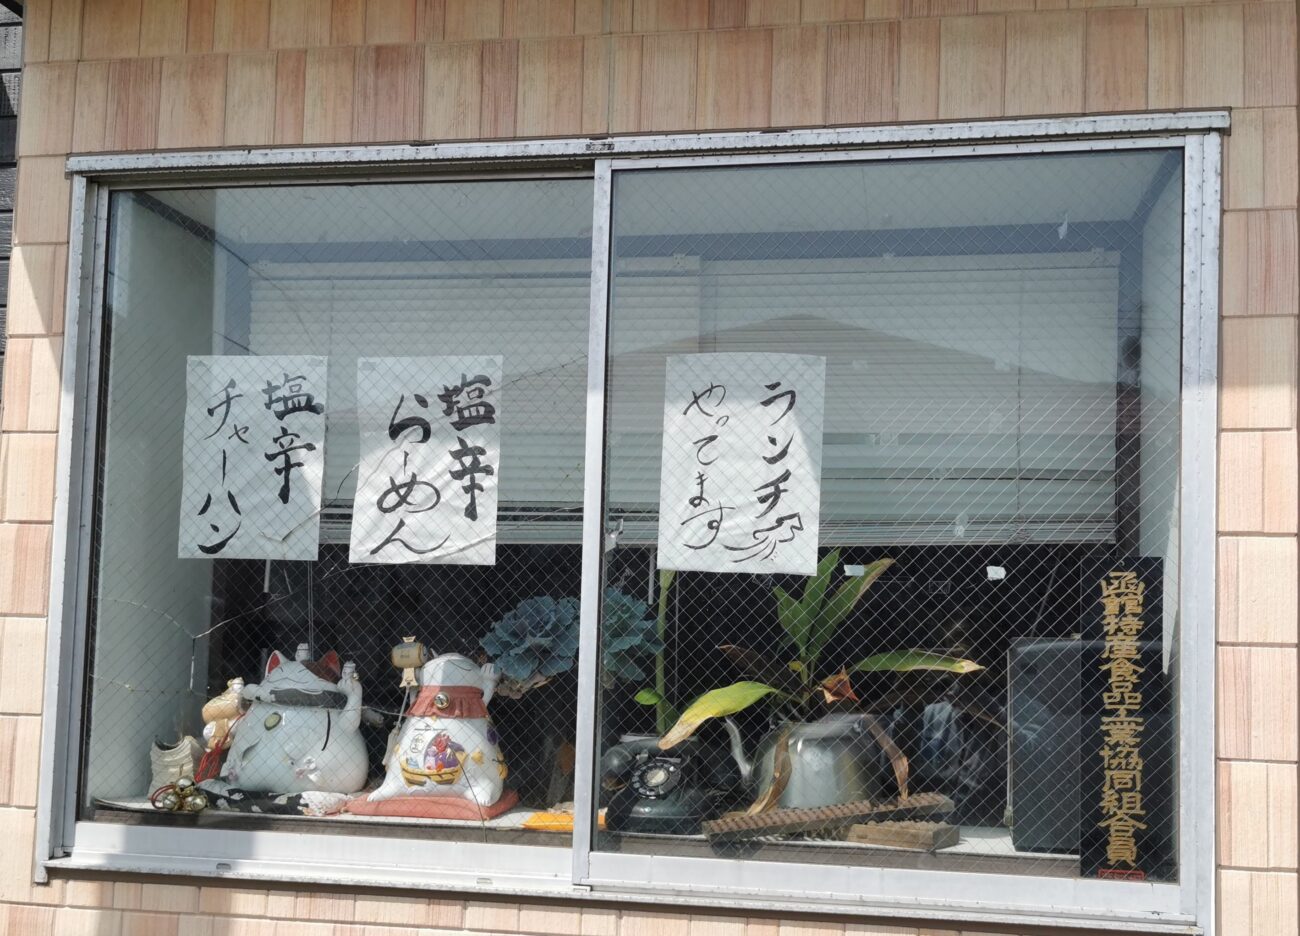 塩辛
チャーハン
塩辛
らーめん
ランチ
やってます
函館特産食品工業協同組合員